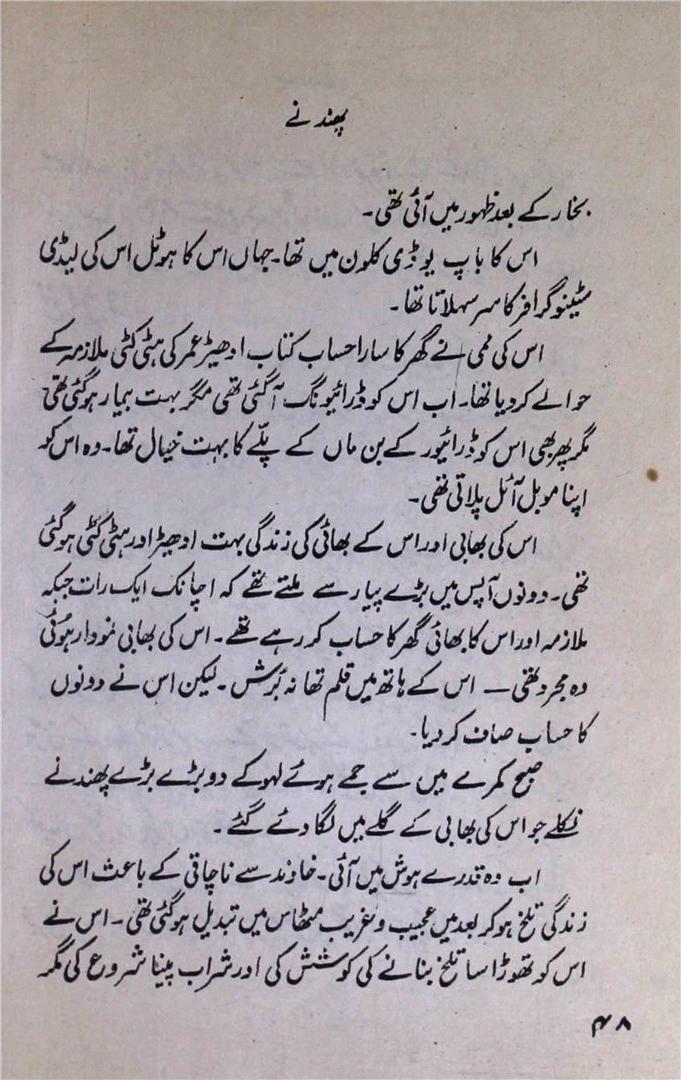 پھندنے
بخار کے بعد ظہور میں آئی تھی۔
اس کا باپ یوڈی کلون میں تھا۔ جہاں اس کا ہوٹل اس کی لیڈی
سٹینو گرافر کا سر سہلاتا تھا۔
اس کی ممی نے گھر کا سارا حساب کتاب ادھیڑ عمر کی ہٹی کٹی ملازمہ کے
حوالے کر دیا تھا۔ اب اس کو ڈرائیونگ آ گئی تھی مگر بہت بیمار ہو گئی تھی
مگر پھر بھی اس کو ڈرائیور کے بن ماں کے پلّے کا بہت خیال تھا۔ وہ اس کو
اپنا موبل آئل پلاتی تھی۔
اس کی بھابی اور اس کے بھائی کی زندگی بہت ادھیڑ اور ہٹی کٹی ہو گئی
تھی۔ دونوں آپس میں بڑے پیار سے ملتے تھے کہ اچانک ایک رات جبکہ
ملازمہ اور اس کا بھائی گھر کا حساب کر رہے تھے۔ اس کی بھابی نمودار ہوئی
وہ مجرد تھی — اس کے ہاتھ میں قلم تھا نہ بُرش۔ لیکن اس نے دونوں
کا حساب صاف کر دیا۔
صبح کمرے میں سے جمے ہوئے لہو کے دو بڑے بڑے پھندنے
نکلے جو اس کی بھابی کے گلے میں لگا دئے گئے۔
اب وہ قدرے ہوش میں آئی۔ خاوند سے ناچاقی کے باعث اس کی
زندگی تلخ ہو کر بعد میں عجیب و غریب مٹھاس میں تبدیل ہو گئی تھی۔ اس نے
اس کو تھوڑا سا تلخ بنانے کی کوشش کی اور شراب پینا شروع کی مگر
۴۸